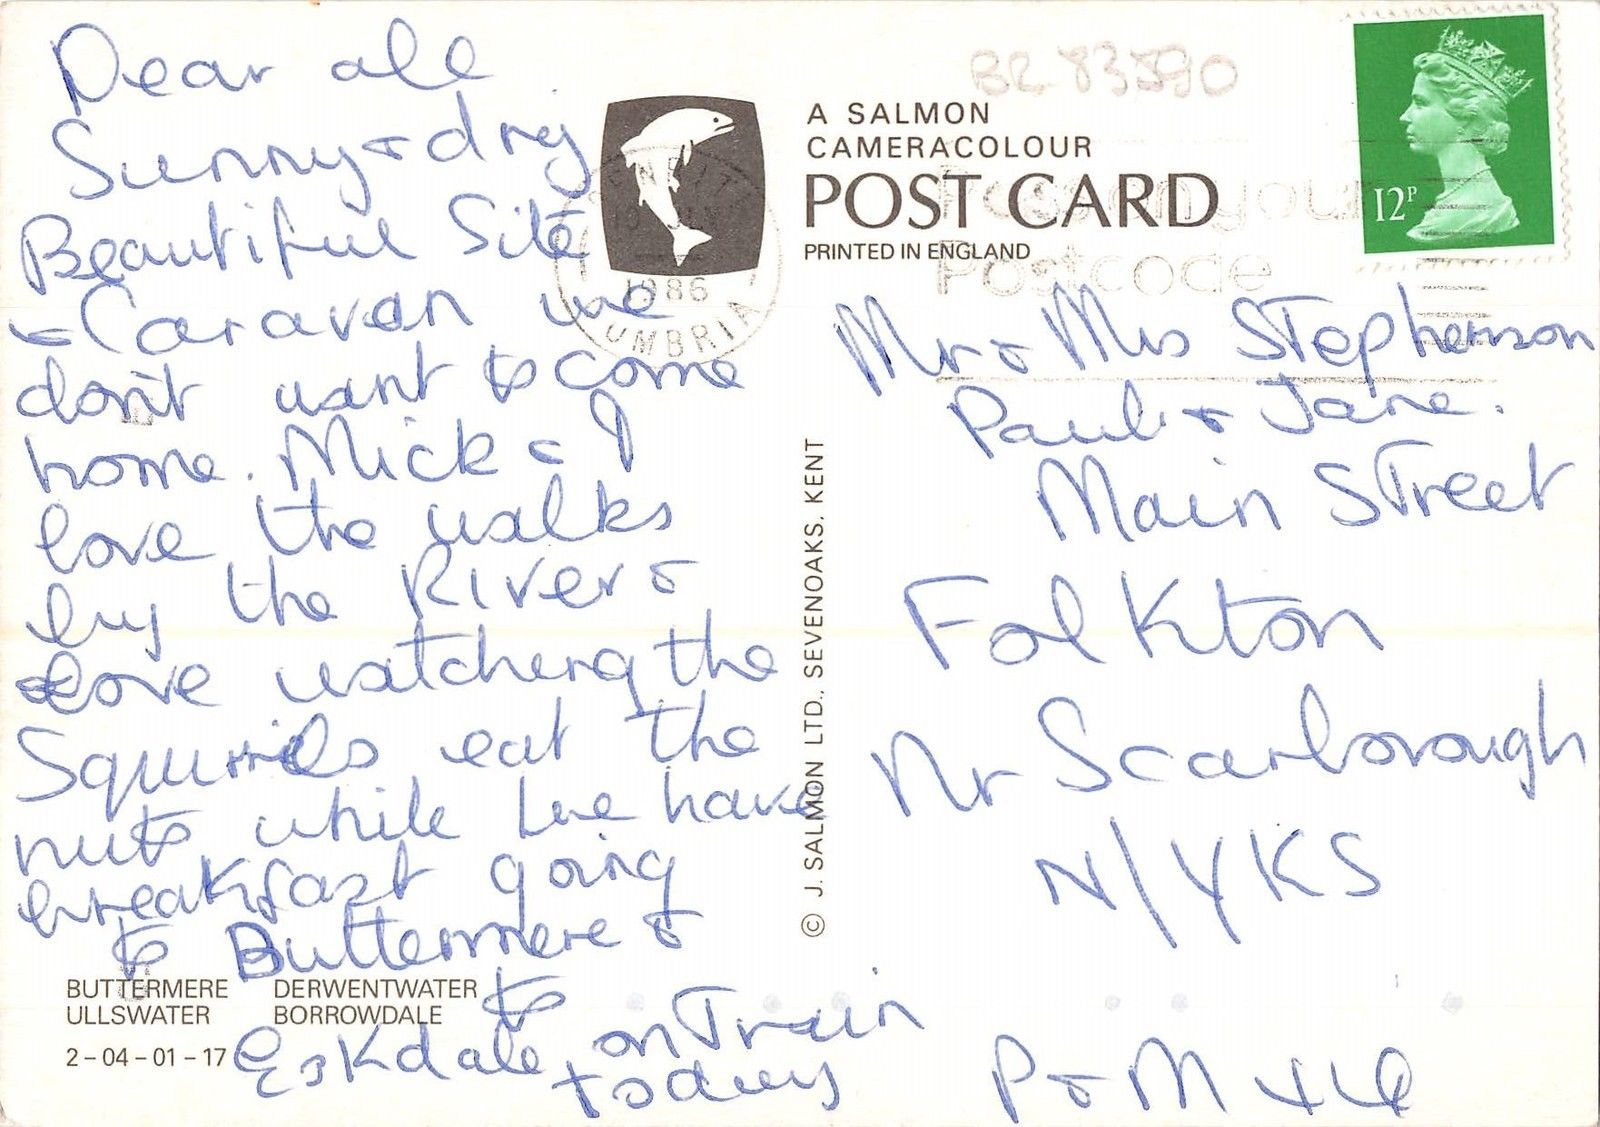 Dear all
Sunny & dry
Beautiful Site
& Caravan we
don't want to come
home. Mick & I
love the walks
by the River &
love watching the
Squirrels eat the
nuts while we have
breakfast going
to Buttermere &
to
Eskdale on Train
today
BUTTERMERE DERWENTWATER
ULLSWATER BORROWDALE
2-04-01-17
A SALMON
CAMERACOLOUR
POST CARD
PRINTED IN ENGLAND
© J. SALMON LTD., SEVENOAKS, KENT
1986
UMBRIA
your
Postcode
12P
Mr & Mrs Stephenson
Paul & Jane.
Main Street
Folkton
Nr Scarborough
N/YKS
P & M